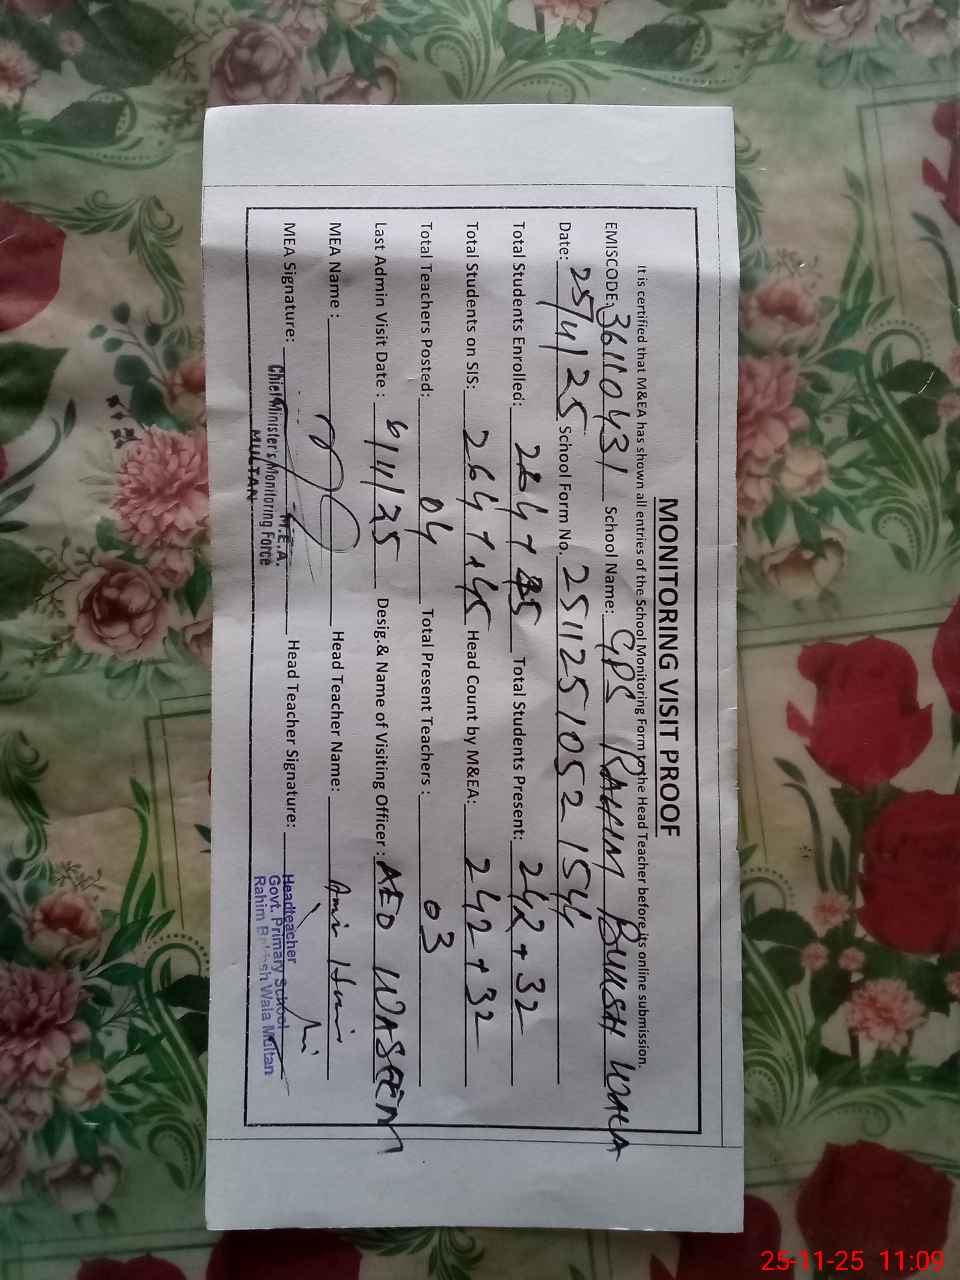 MONITORING VISIT PROOF
It is certified that M&EA has shown all entries of the School Monitoring Form to the Head Teacher before its online submission.
EMISCODE: 36110431 School Name: GPS RAHIM BUKSH WALA
Date: 25/11/25 School Form No. 2511251052 1544
Total Students Enrolled: 264+45 Total Students Present: 242+32
Total Students on SIS: 264++45 Head Count by M&EA: 242+32
Total Teachers Posted: 04 Total Present Teachers : 03
Last Admin Visit Date : 6/11/25 Desig.& Name of Visiting Officer : AEO WASEEM
MEA Name : Head Teacher Name: Amir
MEA Signature: Head Teacher Signature:
M.E.A.
Chief Minister's Monitoring Force
MULTAN
Headteacher
Govt. Primary School
Rahim Bakhsh Wala Multan
25-11-25 11:09